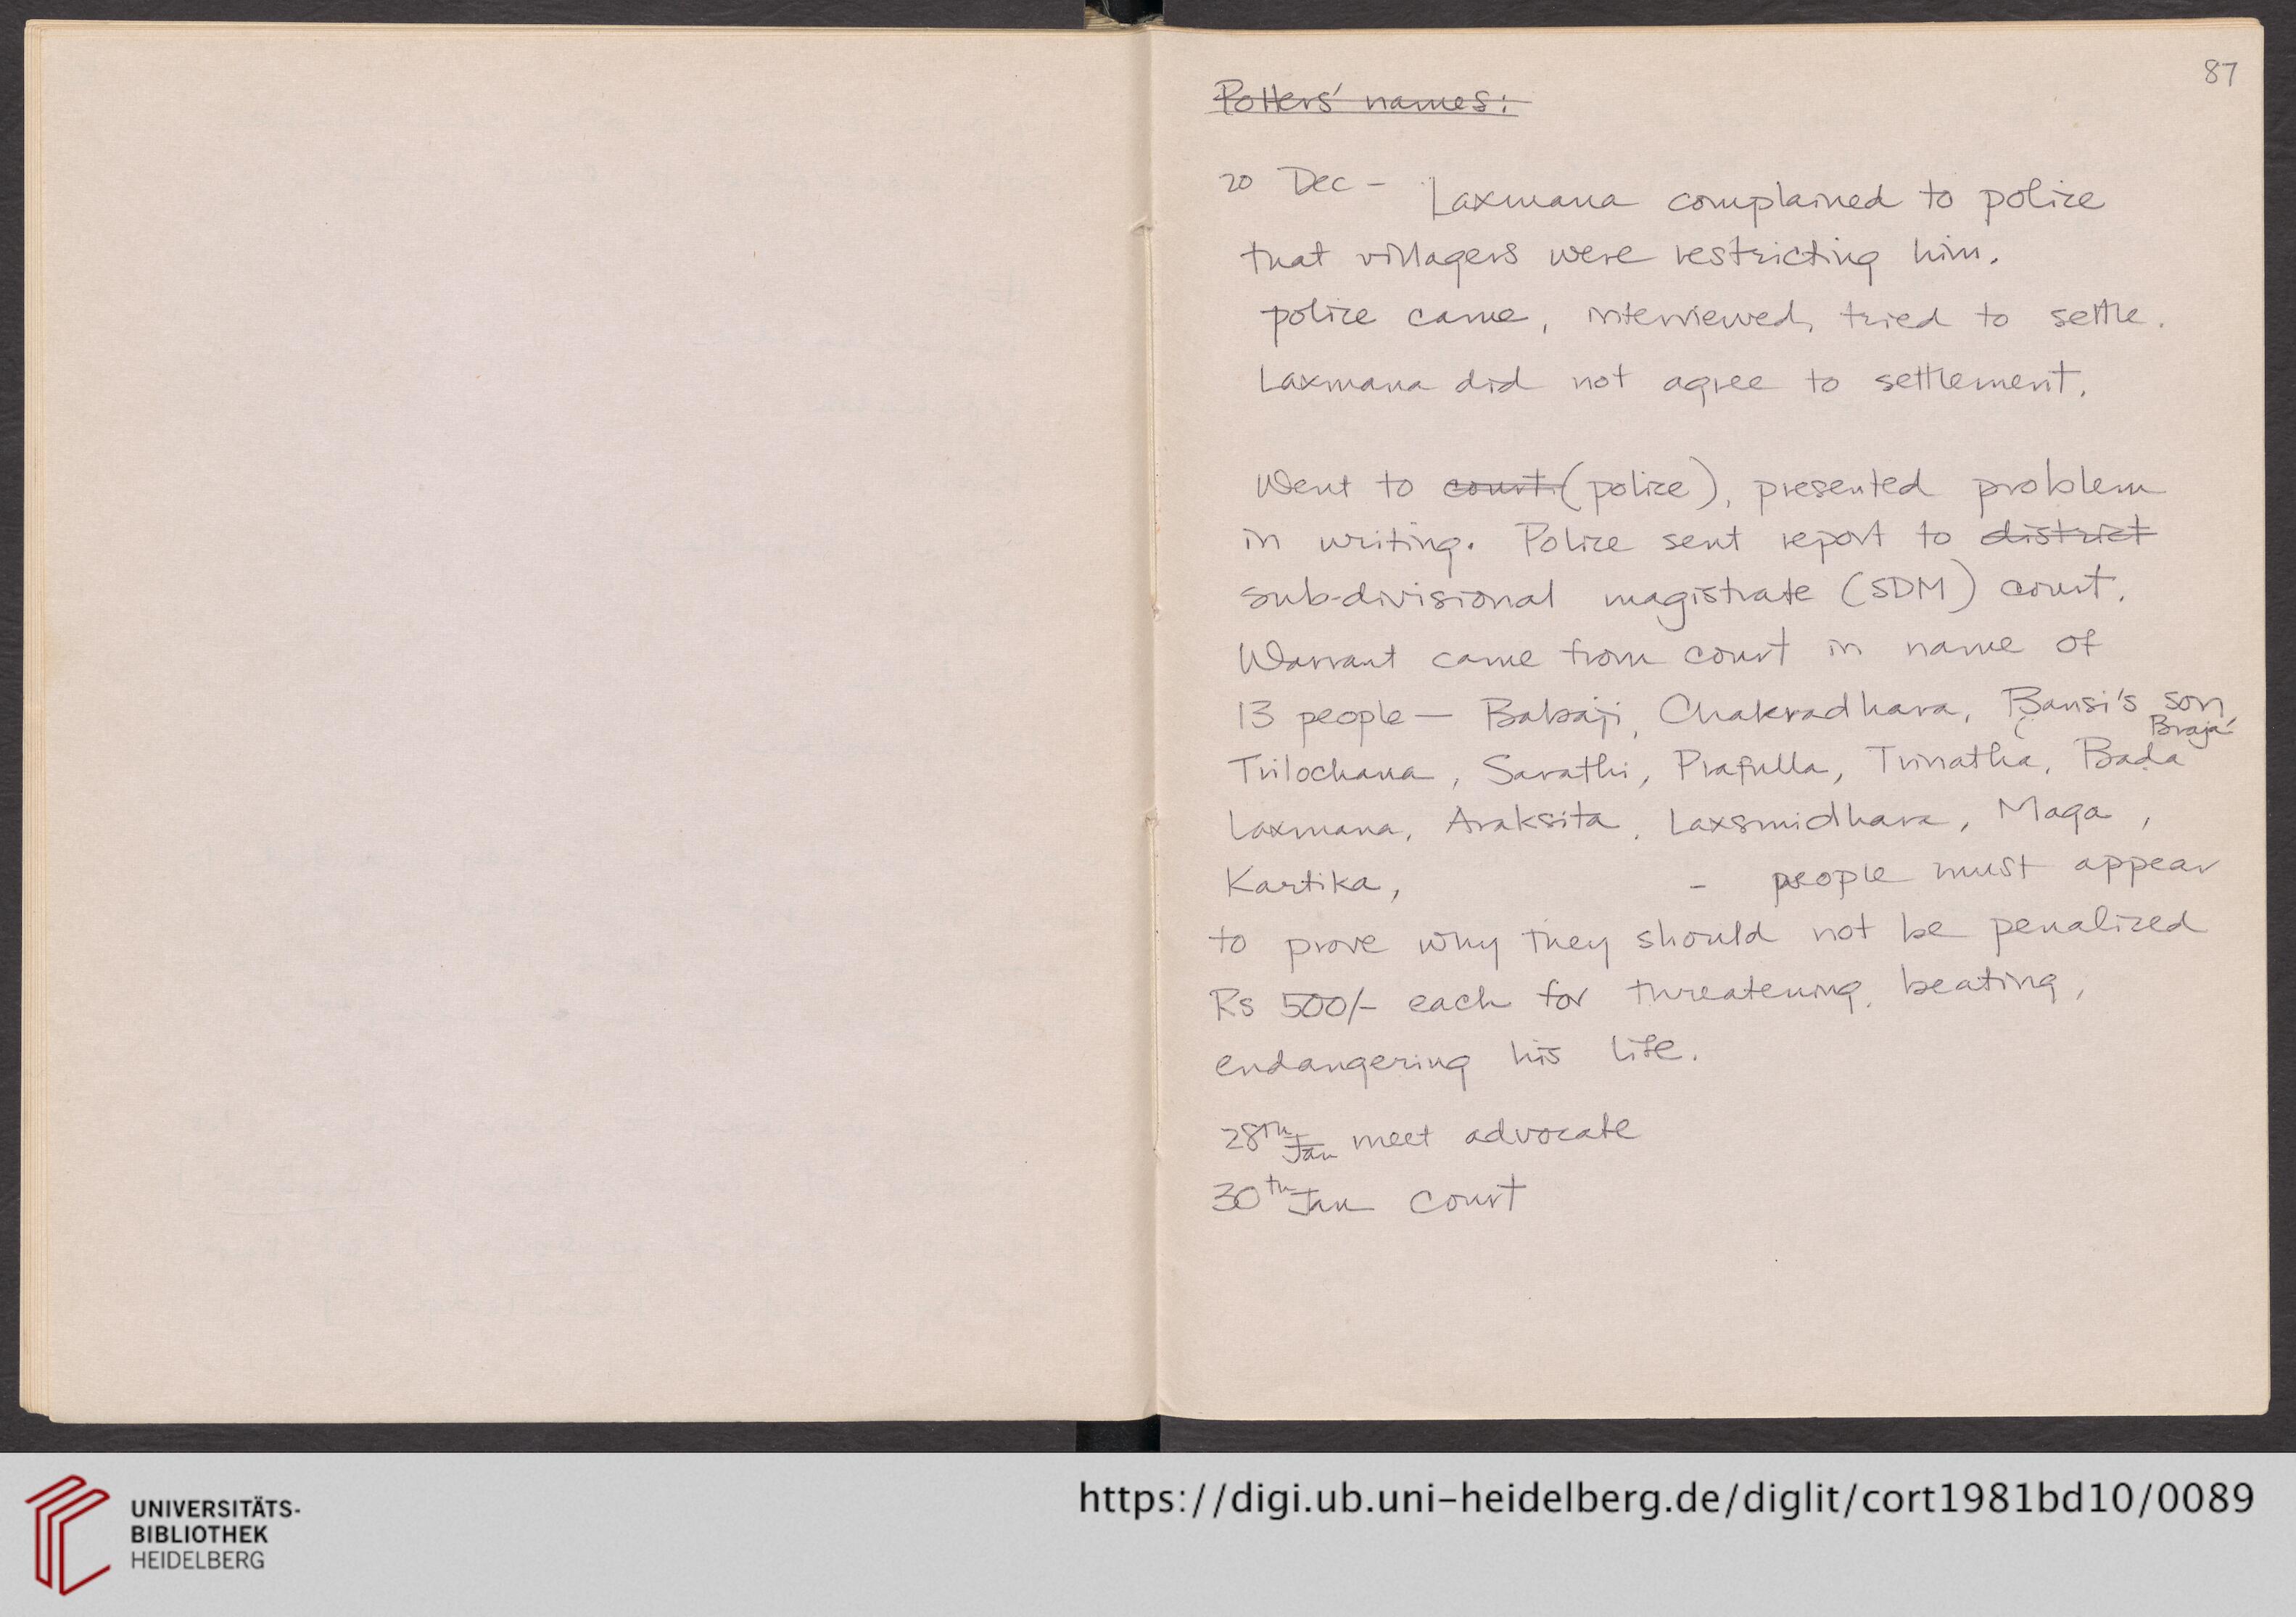 87
Potters' names:
20 Dec - Laxmana complained to police
that villagers were restricting him.
police came, interviewed, tried to settle.
Laxmana did not agree to settlement.
Went to court (police), presented problem
in writing. Police sent report to district
sub-divisional magistrate (SDM) court.
Warrant came from court in name of
13 people — Babaji, Chakradhara, Bansi's son
Braja
Trilochana, Sarathi, Prafulla, Trinatha, Bada
Laxmana, Araksita, Laxsmidhara, Maga,
Kartika, - people must appear
to prove why they should not be penalized
Rs 500/- each for threatening, beating,
endangering his life.
28th Jan meet advocate
30th Jan court
UNIVERSITÄTS-
BIBLIOTHEK
HEIDELBERG
https://digi.ub.uni-heidelberg.de/diglit/cort1981bd10/0089